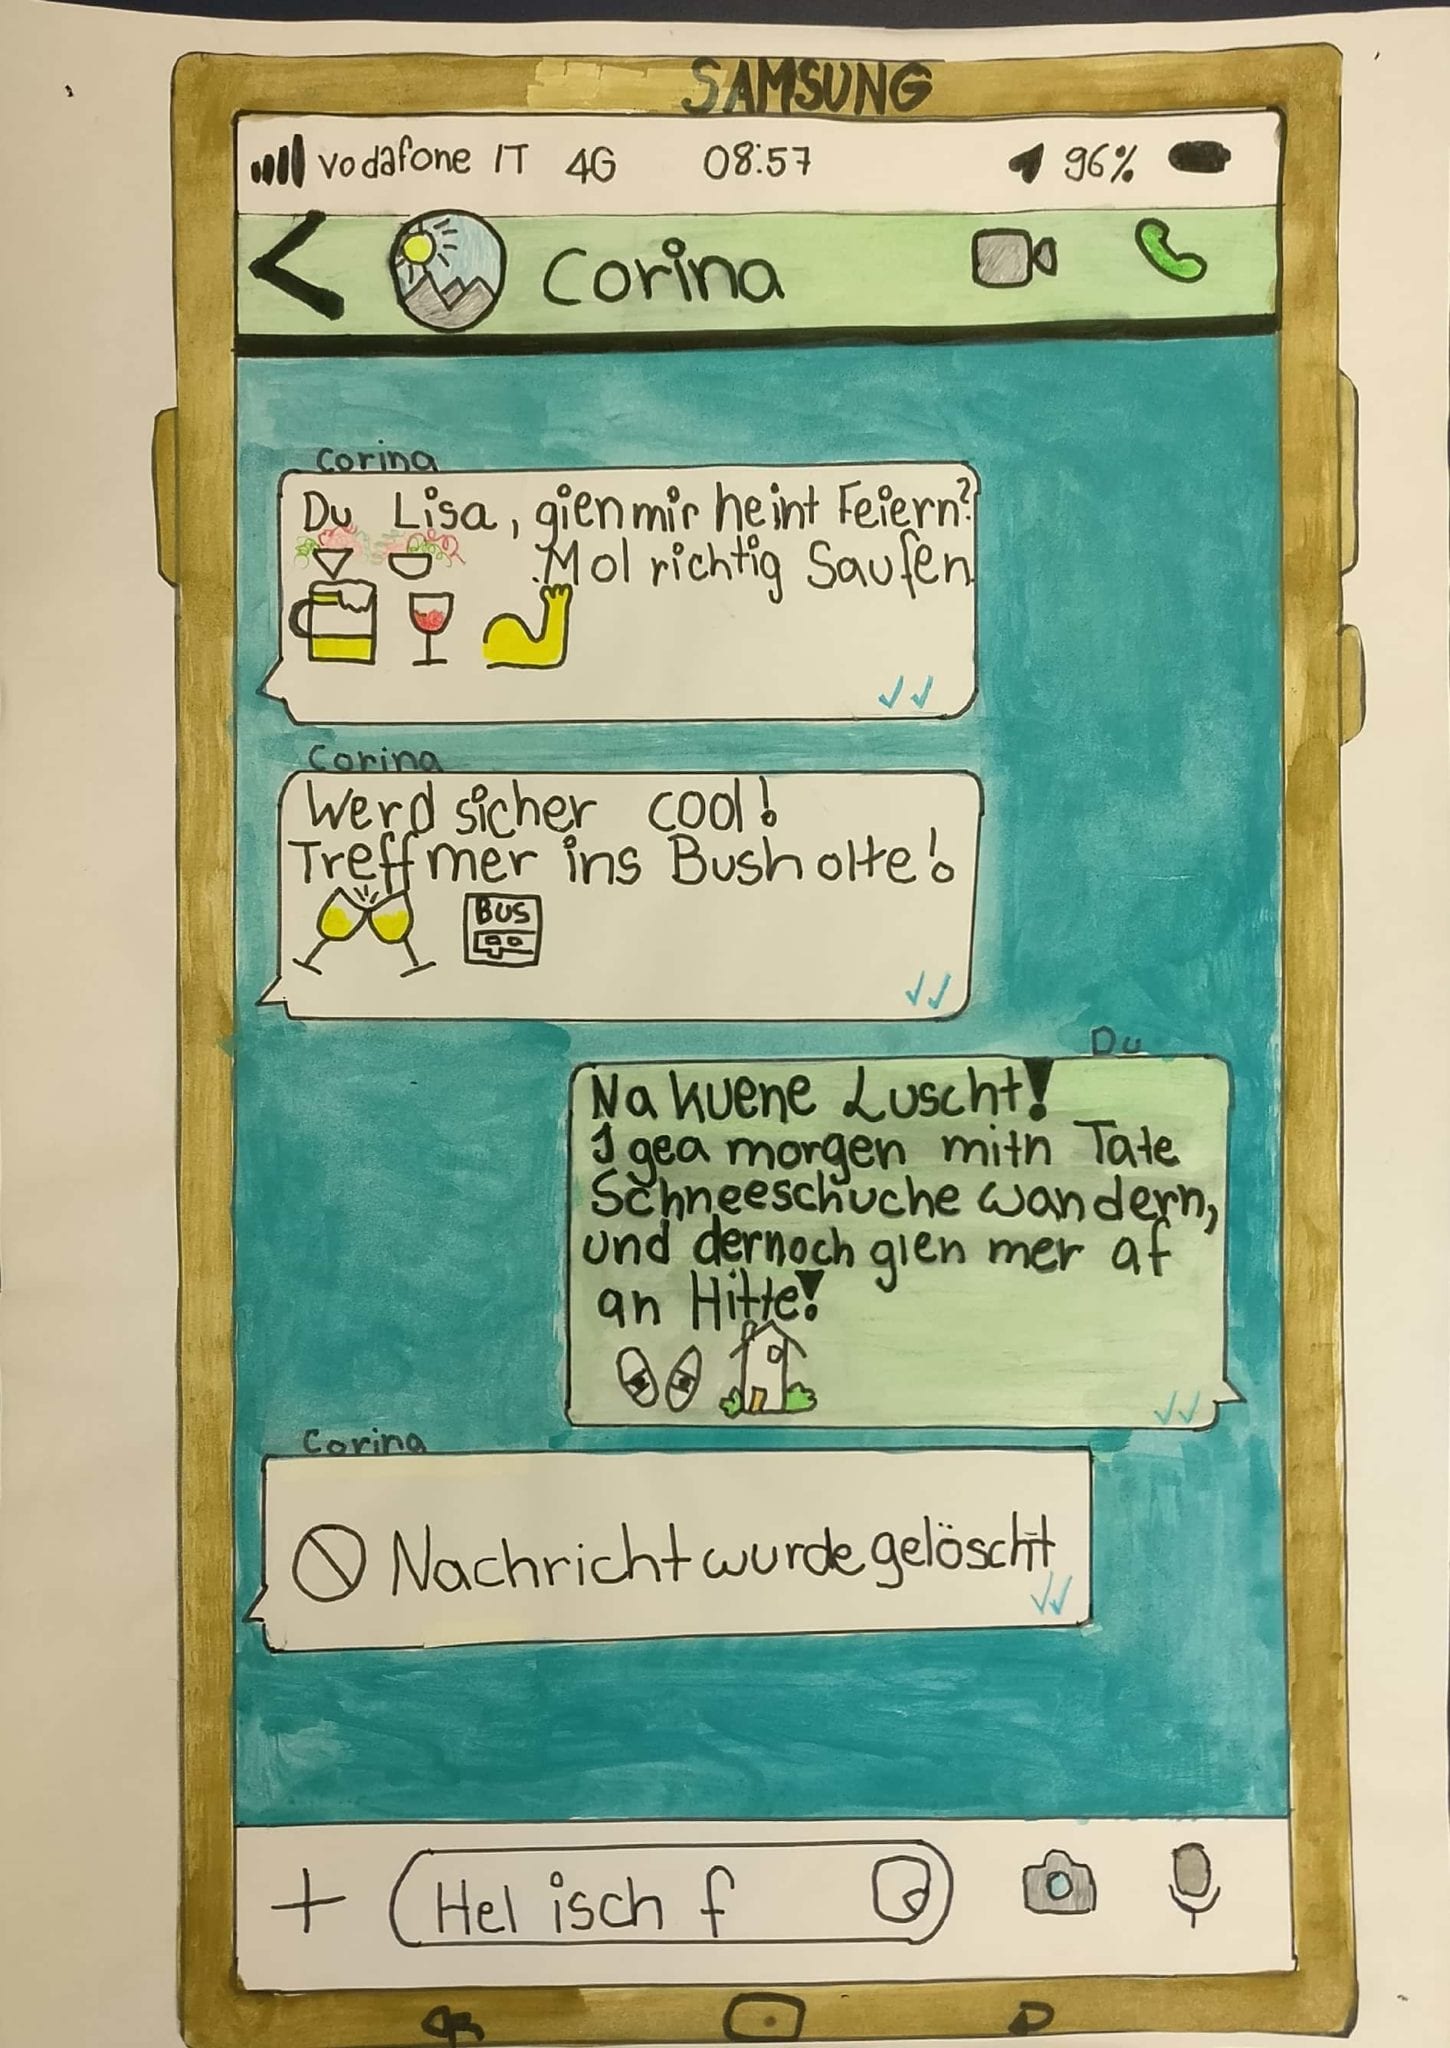 SAMSUNG
vodafone IT 4G 08:57 96%
Corina
Corina
Du Lisa, gien mir heint Feiern?
Mol richtig Saufen
Corina
Werd sicher cool!
Treff mer ins Busholte!
BUS
Du
Na kuene Luscht!
I gea morgen mitn Tate
Schneeschuche wandern,
und dernoch gien mer af
an Hitte!
Corina
Nachricht wurde gelöscht
Hel isch f